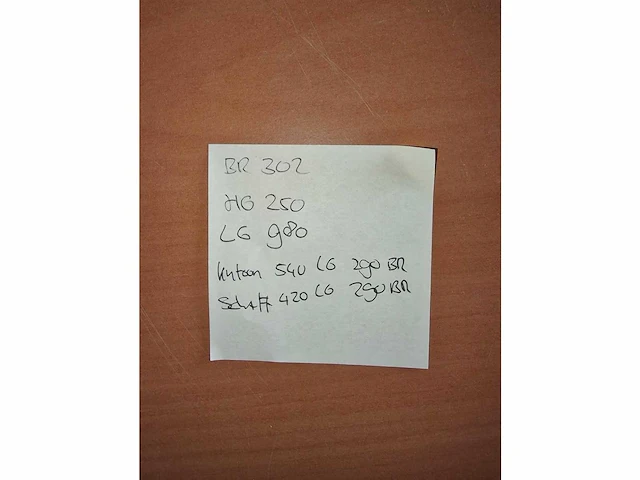 BR 302
HG 250
LG 980
540 LG 290 BR
420 LG 290 BR